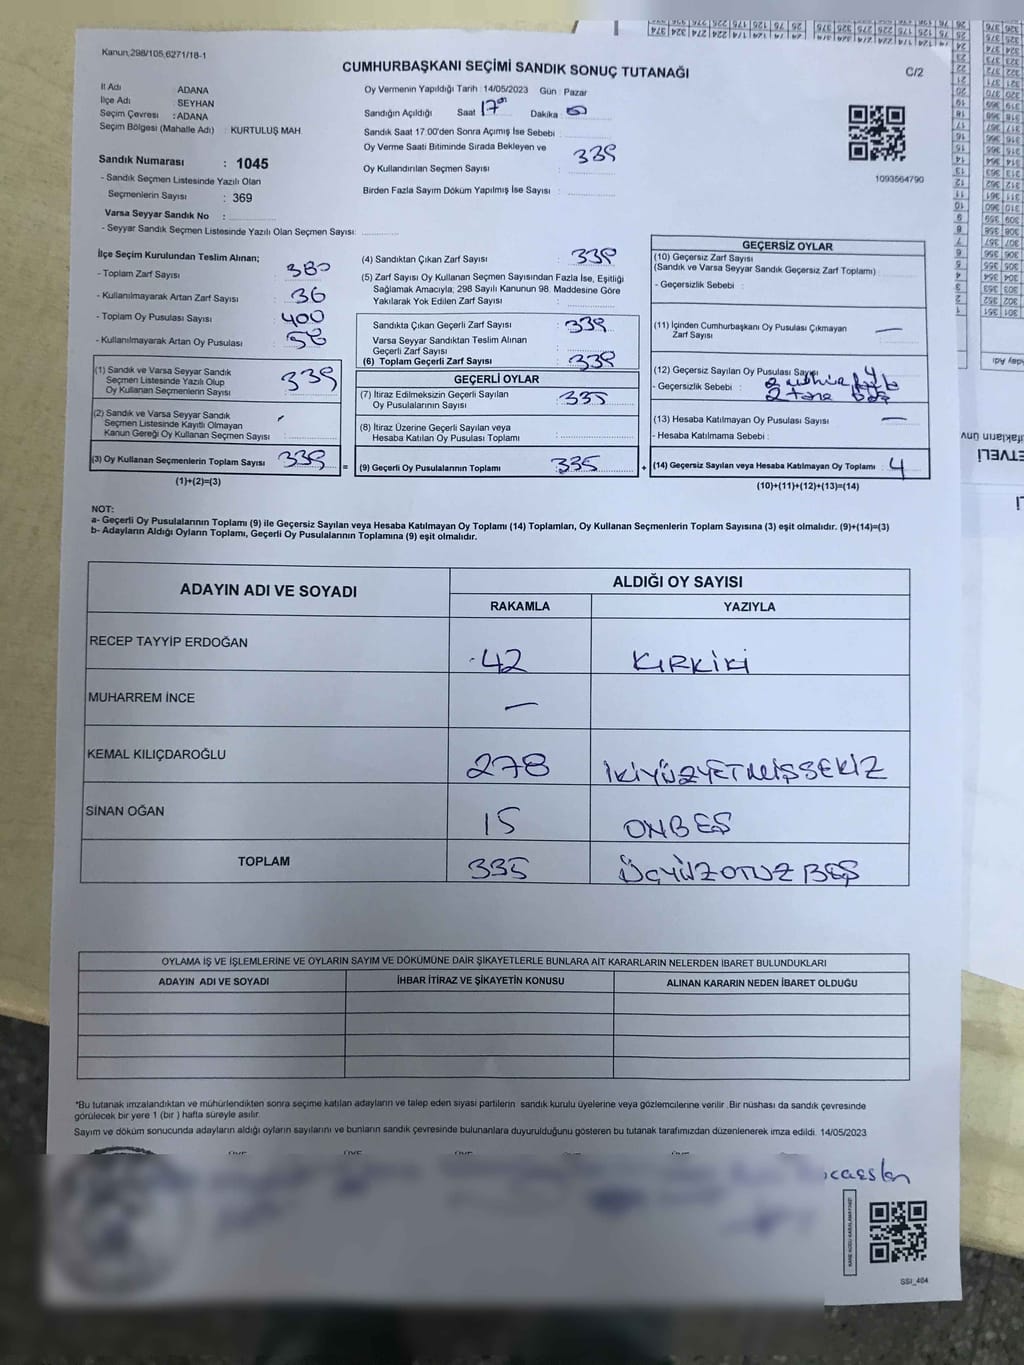 Kanun;298/105,6271/18-1
CUMHURBAŞKANI SEÇİMİ SANDIK SONUÇ TUTANAĞI
C/2
İl Adı : ADANA
İlçe Adı : SEYHAN
Seçim Çevresi : ADANA
Seçim Bölgesi (Mahalle Adı) : KURTULUŞ MAH.
Sandık Numarası : 1045
- Sandık Seçmen Listesinde Yazılı Olan
Seçmenlerin Sayısı : 369
Varsa Seyyar Sandık No :
- Seyyar Sandık Seçmen Listesinde Yazılı Olan Seçmen Sayısı:
Oy Vermenin Yapıldığı Tarih : 14/05/2023 Gün : Pazar
Sandığın Açıldığı Saat 17 Dakika :
Sandık Saat 17:00'den Sonra Açımış İse Sebebi :
Oy Verme Saati Bitiminde Sırada Bekleyen ve
Oy Kullandırılan Seçmen Sayısı : 339
Birden Fazla Sayım Döküm Yapılmış İse Sayısı :
1093564790
İlçe Seçim Kurulundan Teslim Alınan;
- Toplam Zarf Sayısı : 380
- Kullanılmayarak Artan Zarf Sayısı : 36
- Toplam Oy Pusulası Sayısı : 400
- Kullanılmayarak Artan Oy Pusulası : 58
(1) Sandık ve Varsa Seyyar Sandık
Seçmen Listesinde Yazılı Olup
Oy Kullanan Seçmenlerin Sayısı : 339
(2) Sandık ve Varsa Seyyar Sandık
Seçmen Listesinde Kayıtlı Olmayan
Kanun Gereği Oy Kullanan Seçmen Sayısı :
(3) Oy Kullanan Seçmenlerin Toplam Sayısı : 339
(1)+(2)=(3)
(4) Sandıktan Çıkan Zarf Sayısı : 339
(5) Zarf Sayısı Oy Kullanan Seçmen Sayısından Fazla İse, Eşitliği
Sağlamak Amacıyla; 298 Sayılı Kanunun 98. Maddesine Göre
Yakılarak Yok Edilen Zarf Sayısı :
Sandıkta Çıkan Geçerli Zarf Sayısı : 339
Varsa Seyyar Sandıktan Teslim Alınan
Geçerli Zarf Sayısı :
(6) Toplam Geçerli Zarf Sayısı : 339
GEÇERLİ OYLAR
(7) İtiraz Edilmeksizin Geçerli Sayılan
Oy Pusulalarının Sayısı : 335
(8) İtiraz Üzerine Geçerli Sayılan veya
Hesaba Katılan Oy Pusulası Toplamı :
= (9) Geçerli Oy Pusulalarının Toplamı : 335
GEÇERSİZ OYLAR
(10) Geçersiz Zarf Sayısı
(Sandık ve Varsa Seyyar Sandık Geçersiz Zarf Toplamı) :
- Geçersizlik Sebebi :
(11) İçinden Cumhurbaşkanı Oy Pusulası Çıkmayan
Zarf Sayısı : —
(12) Geçersiz Sayılan Oy Pusulası Sayısı : 4
- Geçersizlik Sebebi : 2
2 tane boş
(13) Hesaba Katılmayan Oy Pusulası Sayısı : —
- Hesaba Katılmama Sebebi :
+ (14) Geçersiz Sayılan veya Hesaba Katılmayan Oy Toplamı : 4
(10)+(11)+(12)+(13)=(14)
NOT:
a- Geçerli Oy Pusulalarının Toplamı (9) ile Geçersiz Sayılan veya Hesaba Katılmayan Oy Toplamı (14) Toplamları, Oy Kullanan Seçmenlerin Toplam Sayısına (3) eşit olmalıdır. (9)+(14)=(3)
b- Adayların Aldığı Oyların Toplamı, Geçerli Oy Pusulalarının Toplamına (9) eşit olmalıdır.
ADAYIN ADI VE SOYADI
ALDIĞI OY SAYISI
RAKAMLA YAZIYLA
RECEP TAYYİP ERDOĞAN 42 KIRKİKİ
MUHARREM İNCE —
KEMAL KILIÇDAROĞLU 278 İKİYÜZYETMİŞSEKİZ
SİNAN OĞAN 15 ONBEŞ
TOPLAM 335 ÜÇYÜZOTUZBEŞ
OYLAMA İŞ VE İŞLEMLERİNE VE OYLARIN SAYIM VE DÖKÜMÜNE DAİR ŞİKAYETLERLE BUNLARA AİT KARARLARIN NELERDEN İBARET BULUNDUKLARI
ADAYIN ADI VE SOYADI İHBAR İTİRAZ VE ŞİKAYETİN KONUSU ALINAN KARARIN NEDEN İBARET OLDUĞU
*Bu tutanak imzalandıktan ve mühürlendikten sonra seçime katılan adayların ve talep eden siyasi partilerin sandık kurulu üyelerine veya gözlemcilerine verilir .Bir nüshası da sandık çevresinde
görülecek bir yere 1 (bir ) hafta süreyle asılır.
Sayım ve döküm sonucunda adayların aldığı oyların sayılarını ve bunların sandık çevresinde bulunanlara duyurulduğunu gösteren bu tutanak tarafımızdan düzenlenerek imza edildi. 14/05/2023
SSI_404